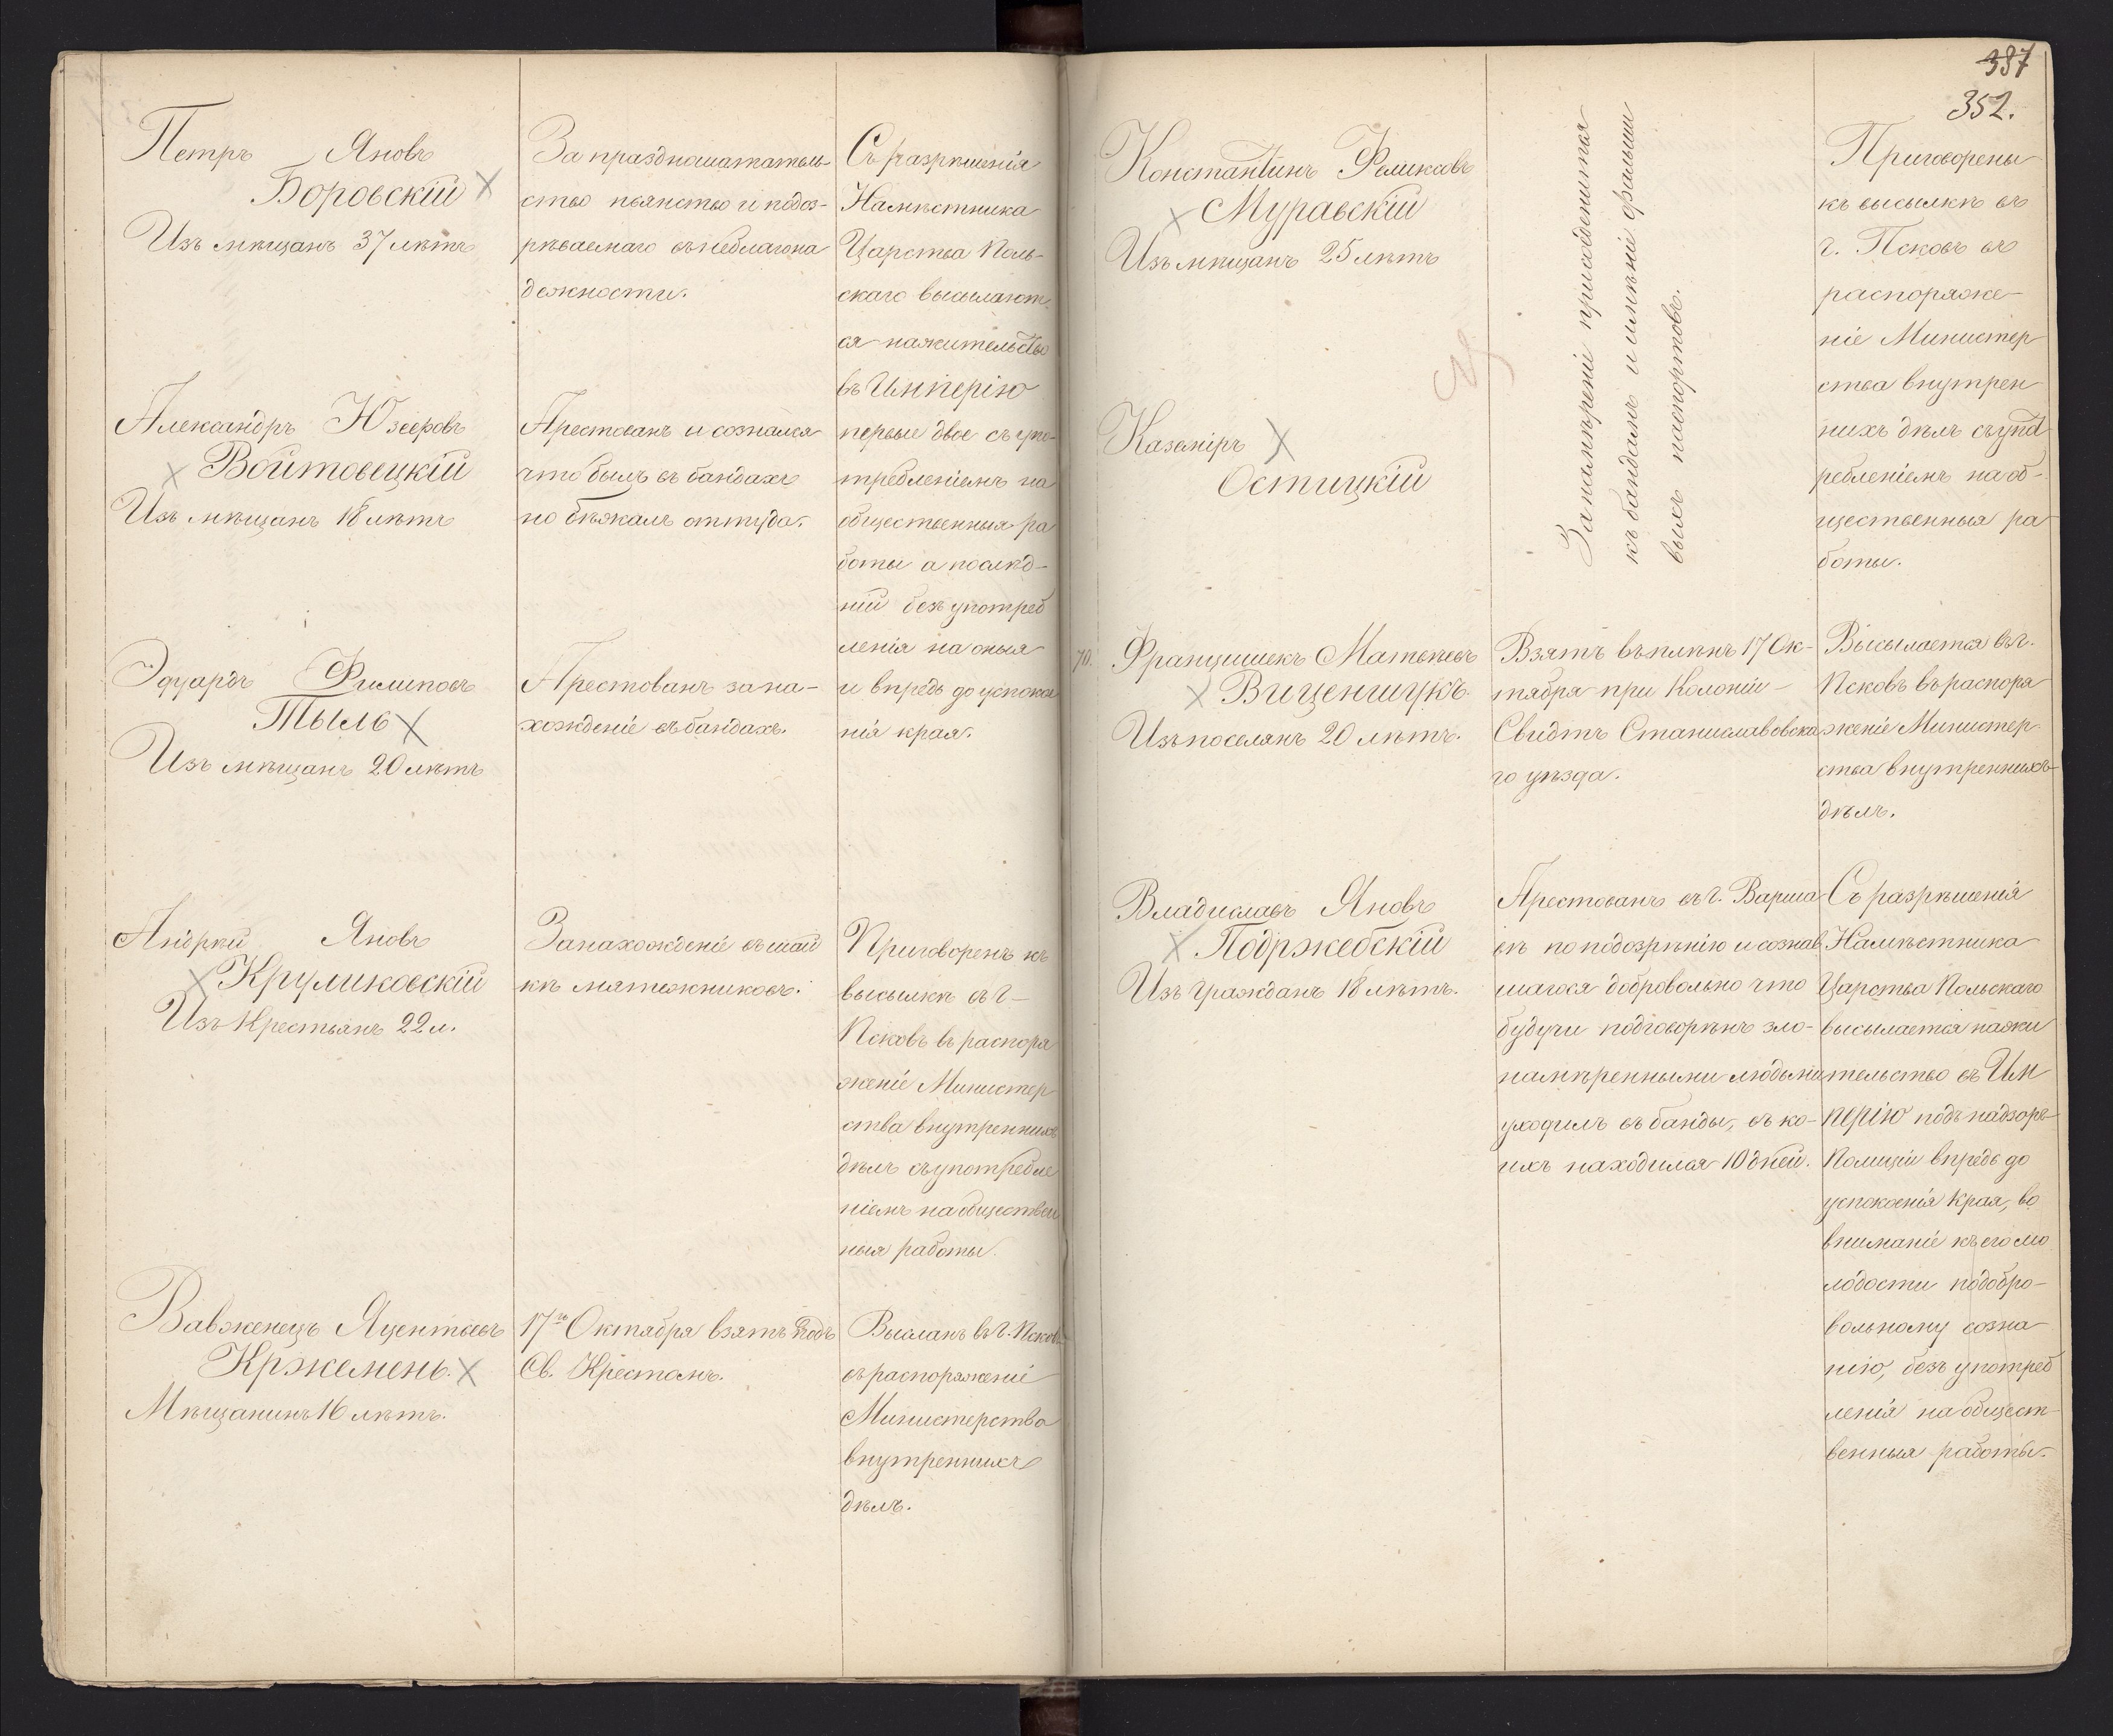 Петръ Яновъ
Боровскій
Изъ мѣщанъ 37 лѣтъ
За праздношатательство
ство пьянство и подоз-
рѣваемаго въ неблагона
дежности.
Съ разрѣшенія
Намѣстника
Царства Поль-
скаго высылают
ся на жительство
въ Имперію
первые двое съ упо-
требленіемъ на
общественныя ра
боты а послѣд-
ній безъ употреб
ленія на оныя
и впредь до успокое
нія края.
Александръ Юзефовъ
Войтовецкій
Изъ мѣщанъ 18 лѣтъ
Арестованъ и сознался
что былъ въ бандахъ
но бѣжалъ оттуда.
Эдуардъ Филиповъ
Тыль
Изъ мѣщанъ 20 лѣтъ
Арестованъ за на-
хожденіе въ бандахъ.
Андрей Яновъ
Круликовскій
Изъ Крестьянъ 22 л.
За нахожденіе въ шай
кѣ мятежниковъ.
Приговоренъ къ
высылкѣ въ г-
Псковъ въ распоря
женіе Министер
ства внутреннихъ
дѣлъ съ употребле
ніемъ на обществен
ныя работы.
Вавженецъ Яцентьевъ
Кржемень.
Мѣщанинъ 16 лѣтъ.
17го Октября взятъ подъ
Св. Крестомъ.
Высланъ въ г. Псковъ
въ распоряженіе
Министерства
внутреннихъ
дѣлъ.
387
352.
Константинъ Феликсовъ
Муравскій
Изъ мѣщанъ 25 лѣтъ
Казиміръ
Остицкій
За намѣреніе присоединится
къ бандамъ и имѣніе фальши
выхъ паспортовъ.
Приговорены
къ высылкѣ въ
г. Псковъ въ
распоряже-
ніе Министер
ства внутрен
нихъ дѣлъ съ упот
ребленіемъ на об-
щественныя ра
боты.
70.
Францишекъ Матвѣевъ
Виценщукъ.
Изъ поселянъ 20 лѣтъ.
Взятъ въ плѣнъ 17 Ок-
тября при Колоніи-
Свидтъ Станиславовска
го уѣзда.
Высылается въ г.
Псковъ въ распоря
женіе Министер-
ства внутреннихъ
дѣлъ.
Владиславъ Яновъ
Подржебскій
Изъ Гражданъ 18 лѣтъ.
Арестованъ въ г. Варша
вѣ по подозрѣнію и сознав
шагося добровольно что
будучи подговорѣнъ зло-
намѣренными людьми
уходилъ въ банды, въ ко-
ихъ находился 10 дней.
Съ разрѣшенія
Намѣстника
Царства Польскаго
высылается на жи
тельство въ Им
перію подъ надзоръ
Полиціи впредь до
успокоенія края, во
вниманіе къ его мо
лодости по добро-
вольному созна
нію, безъ употреб
ленія на общест
венныя работы.